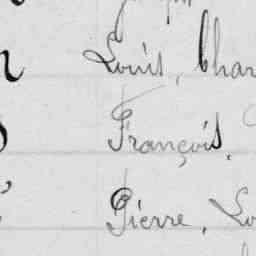 Louis, Char
François,
Pierre, Lo